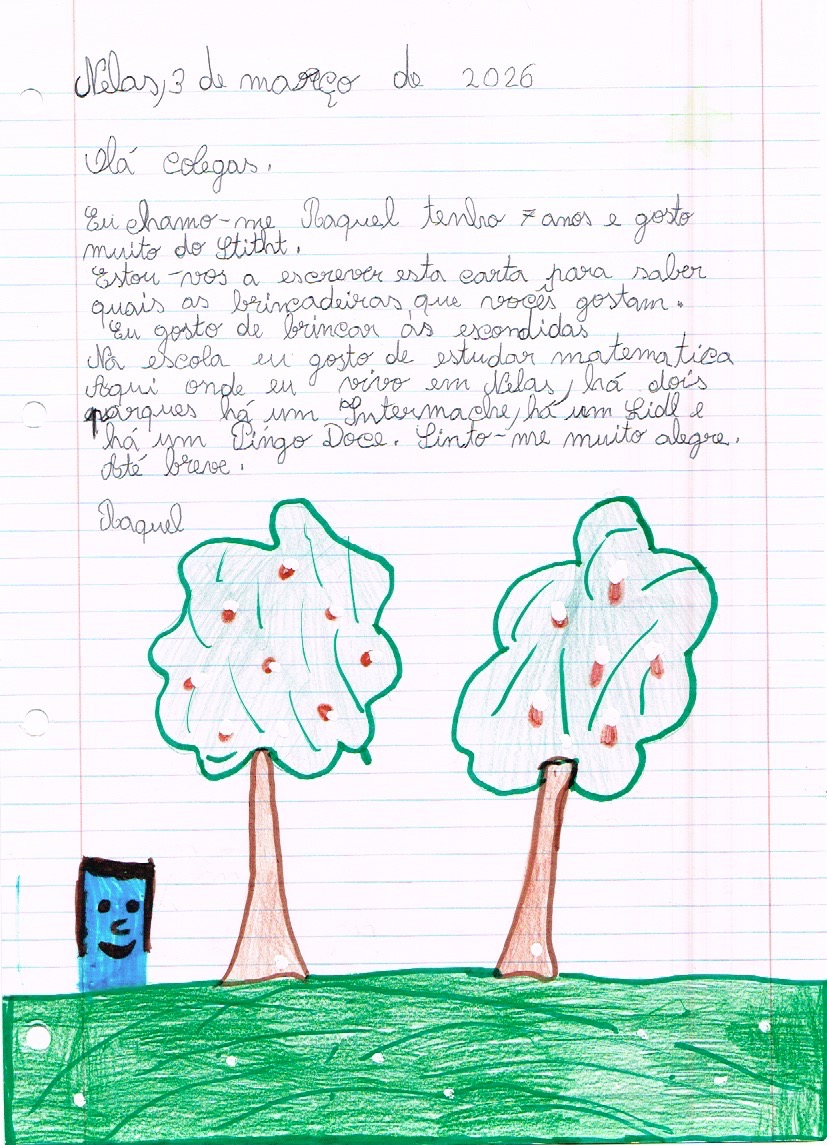 Nelas, 3 de março de 2026
Olá colegas.
Eu chamo-me Raquel tenho 7 anos e gosto
muito do Stitht.
Estou-vos a escrever esta carta para saber
quais as brincadeiras que vocês gostam.
Eu gosto de brincar ás escondidas
Na escola eu gosto de estudar matematica
Aqui onde eu vivo em Nelas, há dois
parques há um Intermache, há um Lidl e
há um Pingo Doce. Sinto-me muito alegre.
Até breve.
Raquel